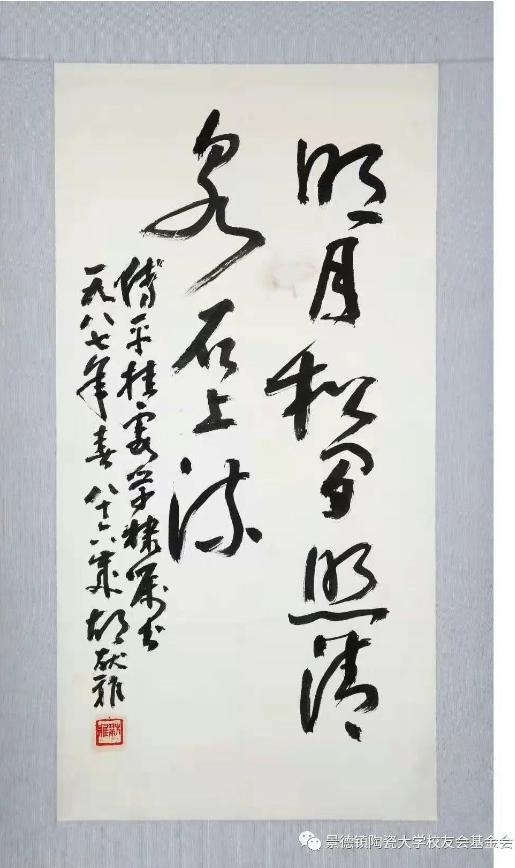 明月松间照清
泉石上流
平桂霞学棣属书
一九八七年春 八十六岁 胡献雅
献雅
景德镇陶瓷大学校友会基金会